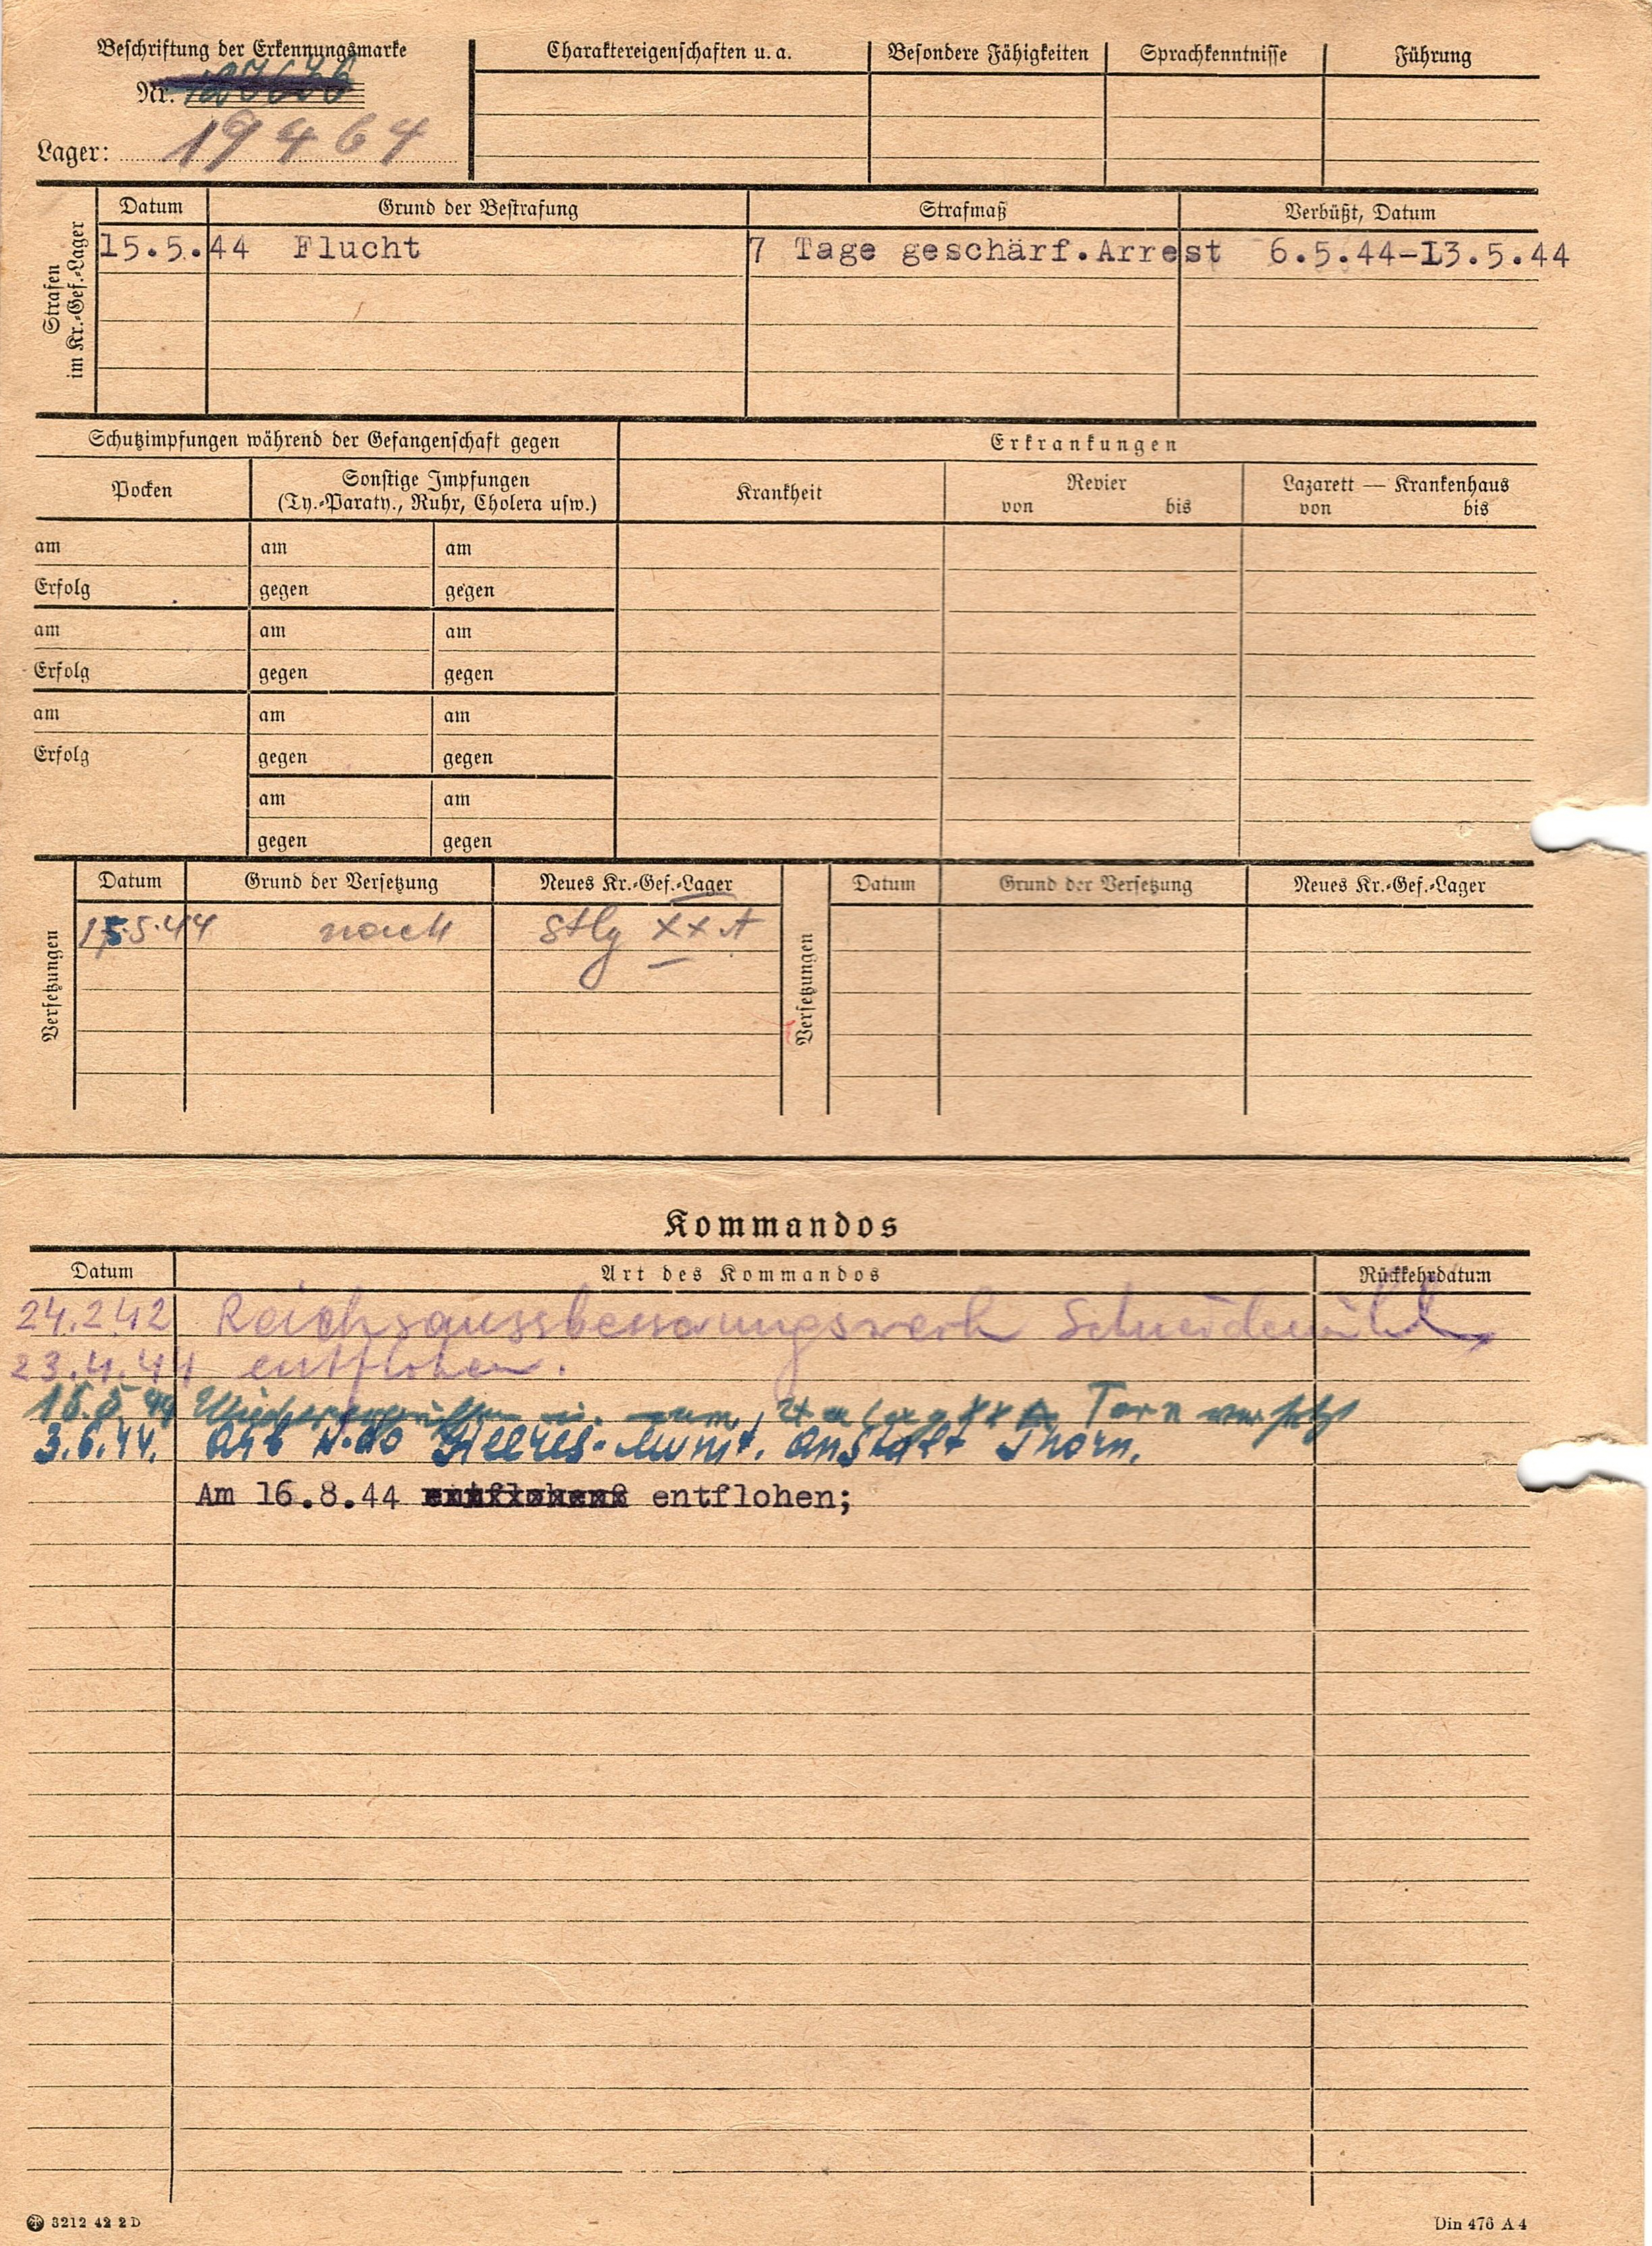 Beschriftung der Erkennungsmarke
Nr.
19464
Lager:
Charaktereigenschaften u. a. Besondere Fähigkeiten Sprachkenntnisse Führung
Strafen im Kr.-Gef.-Lager
Datum Grund der Bestrafung Strafmaß Verbüßt, Datum
15.5.44 Flucht 7 Tage geschärf.Arrest 6.5.44-13.5.44
Schutzimpfungen während der Gefangenschaft gegen
Erkrankungen
Pocken
Sonstige Impfungen
(Ty.-Paraty., Ruhr, Cholera usw.)
Krankheit
Revier
von bis
Lazarett — Krankenhaus
von bis
am am am
Erfolg gegen gegen
am am am
Erfolg gegen gegen
am am am
Erfolg gegen gegen
am am
gegen gegen
Versetzungen
Datum Grund der Versetzung Neues Kr.-Gef.-Lager
15.5.44 nach Stlg XXA
Versetzungen
Datum Grund der Versetzung Neues Kr.-Gef.-Lager
Kommandos
Datum Art des Kommandos Rückkehrdatum
24.2.42 Reichsaussbesserungswerk Schneidemühl
23.4.44 entflohen.
15.5.44 Wiederergriffen u. zum Stalag XX A Torn versetzt
3.6.44. Arb Kdo Heeres-Munit. Anstalt Thorn.
Am 16.8.44 entflohen;
3212 42 2 D
Din 476 A 4